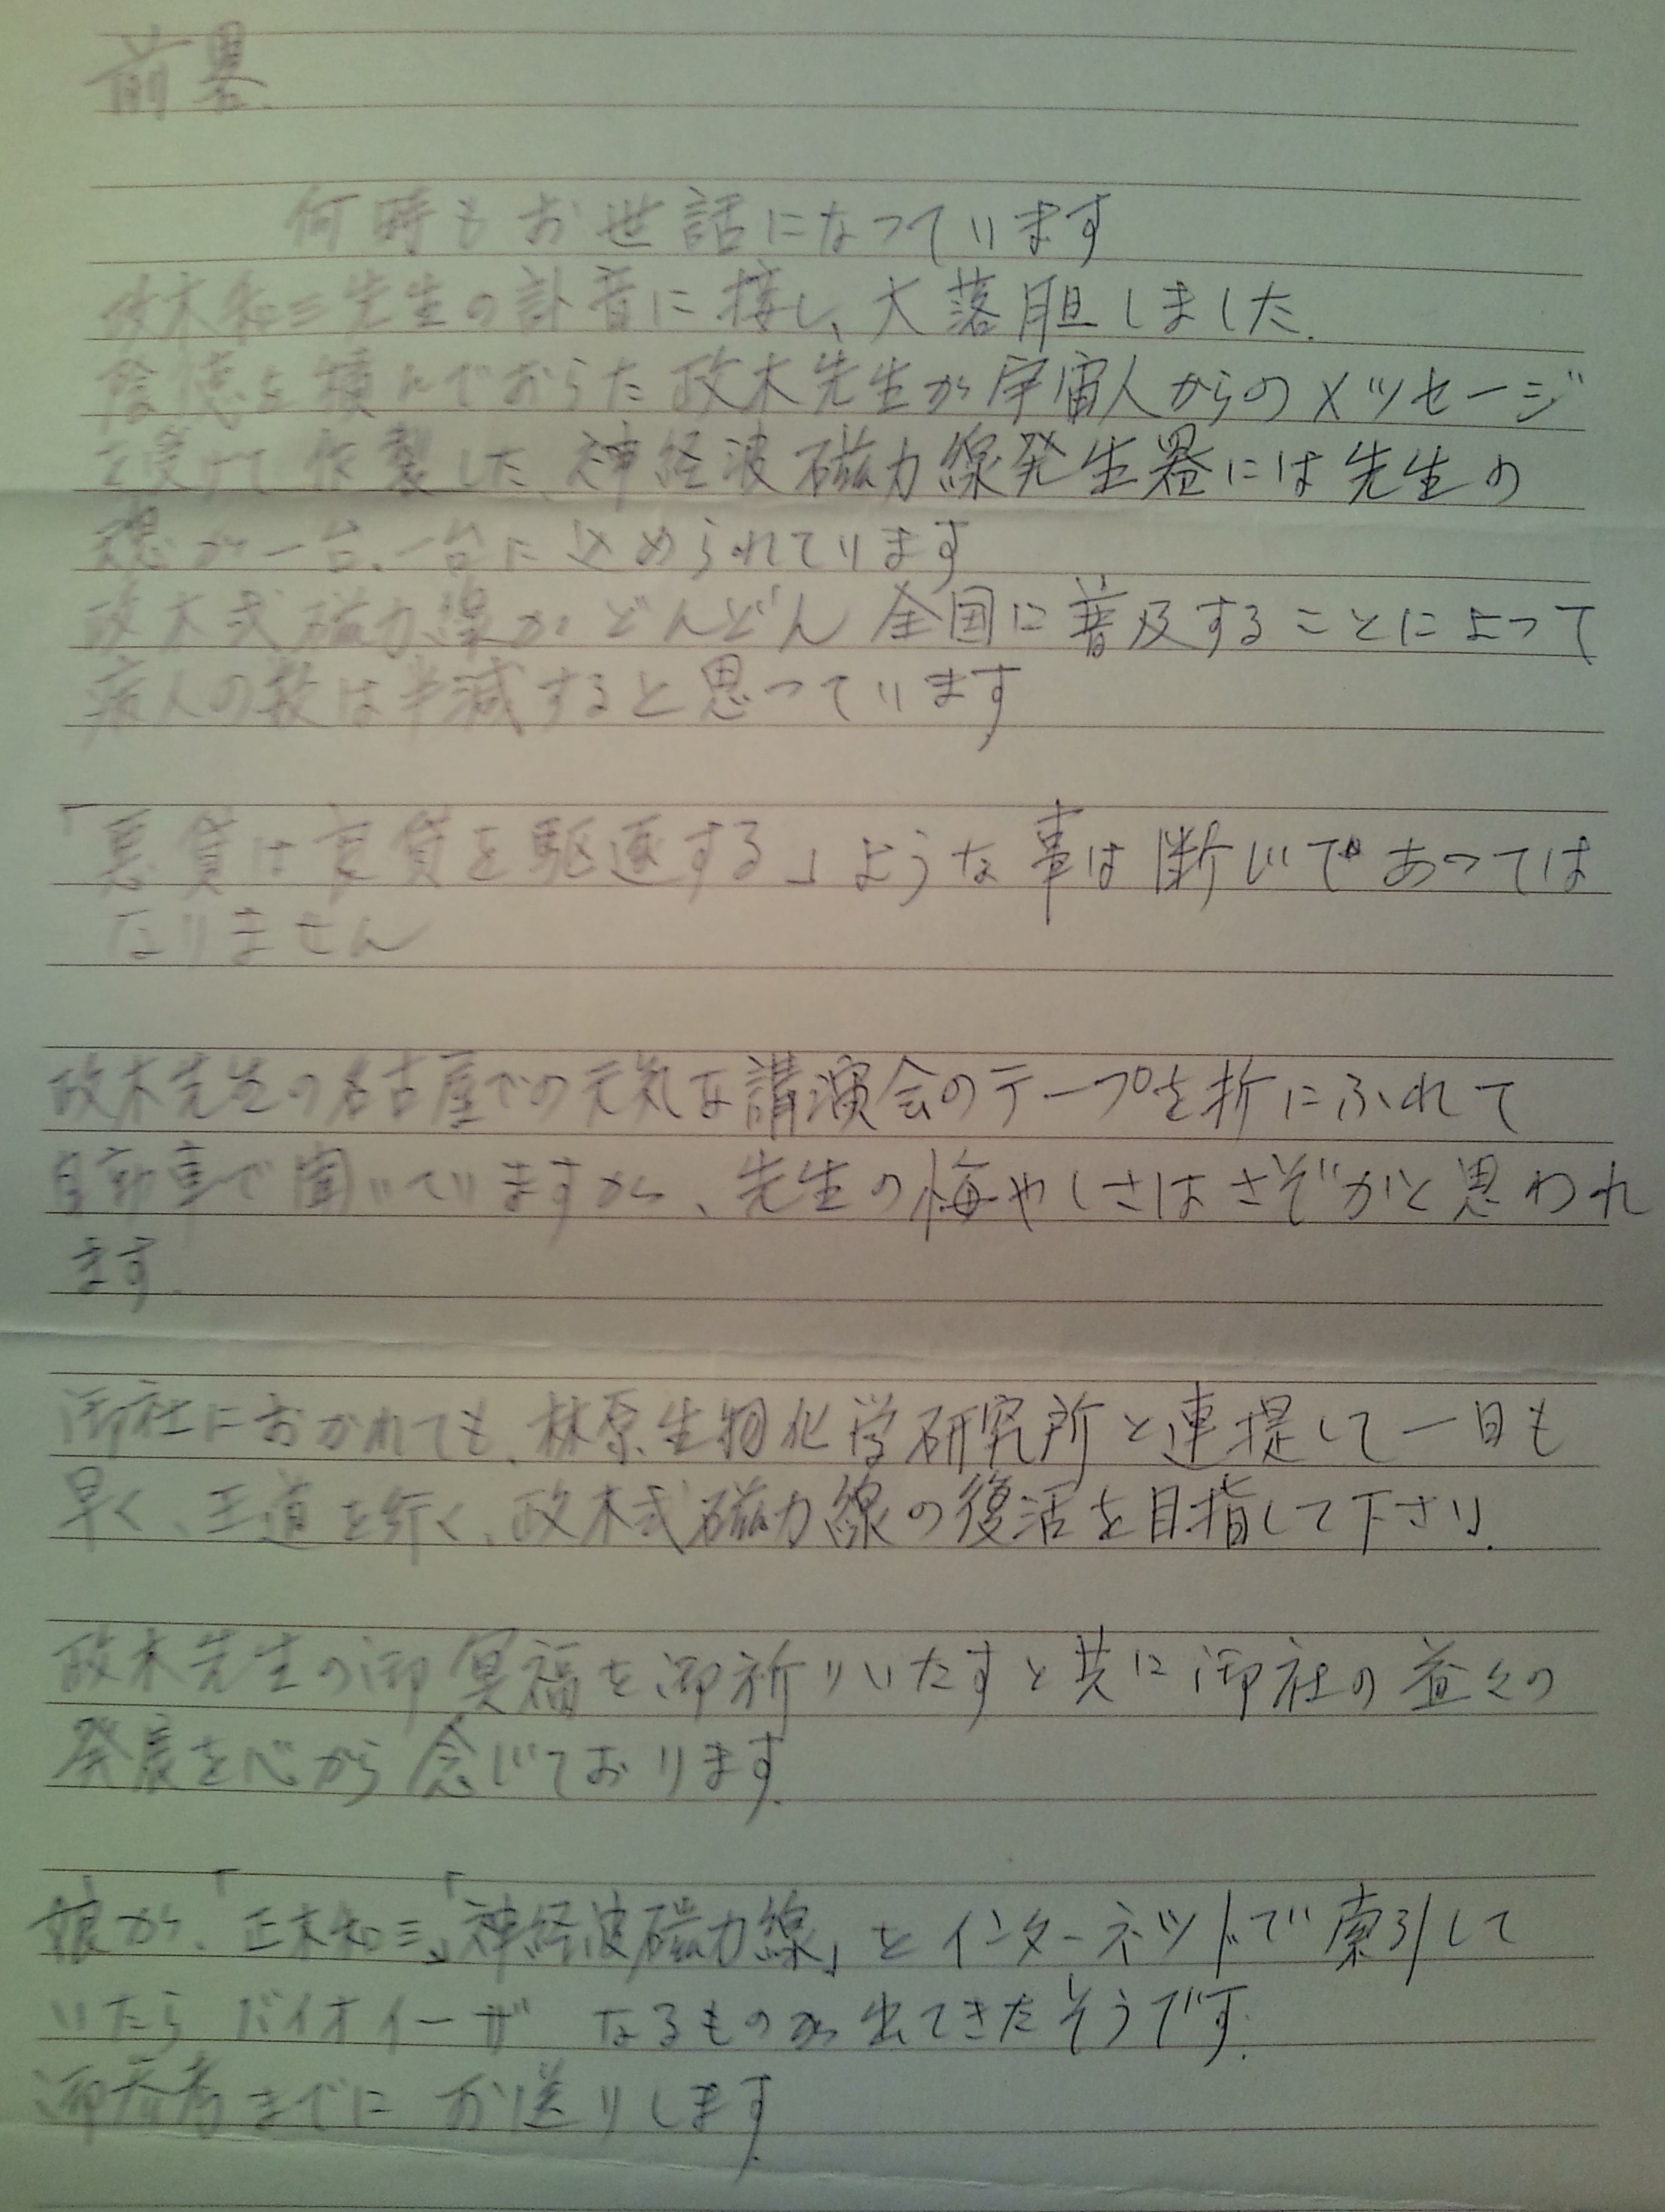 前畧
何時もお世話になっています
政木和三先生の訃音に接し、大落胆しました.
陰徳を積んでおらた政木先生が宇宙人からのメッセージ
を受けて作製した、神経波磁力線発生器には先生の
魂が一台、一台に込められています
政木式磁力線がどんどん全国に普及することによって
病人の数は半減すると思っています
「悪貨は良貨を駆逐する」ような事は断じてあっては
なりません
政木先生の名古屋での元気な講演会のテープを折にふれて
自動車で聞いていますが、先生の悔やしさはさぞかと思われ
ます.
御社におかれても、林原生物化学研究所と連提して一日も
早く、王道を行く、政木式磁力線の復活を目指して下さい.
政木先生の御冥福を御祈りいたすと共に御社の益々の
発展を心から念じております.
娘が、「正木和三」「神経波磁力線」をインターネットで索引して
いたらバイオイーザなるものが出てきたそうです.
御参考までにお送りします.